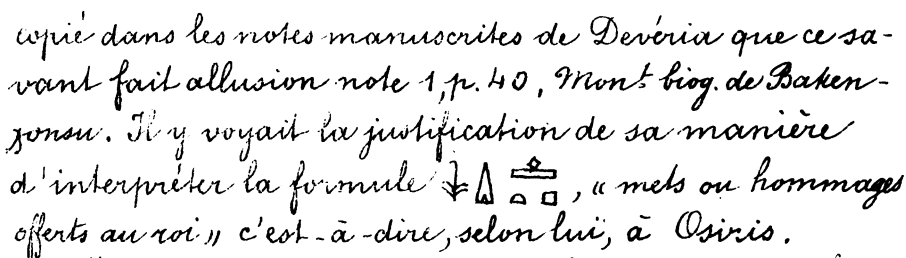 copié dans les notes manuscrites de Devéria que ce sa-
vant fait allusion note 1, p. 40, Mont. biog. de Baken-
χonsu. Il y voyait la justification de sa manière
d'interpréter la formule 𓇓𓏙𓊵𓏏𓊪, « mets ou hommages
offerts au roi » c'est-à-dire, selon lui, à Osiris.